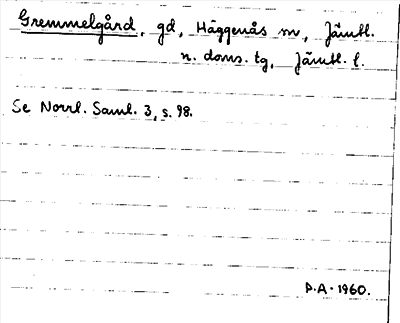 Gremmelgård, gd, Häggenås sn, Jämtl.
n. doms. tg, Jämtl. l.
Se Norrl. Saml. 3, s. 98.
P.A. 1960.